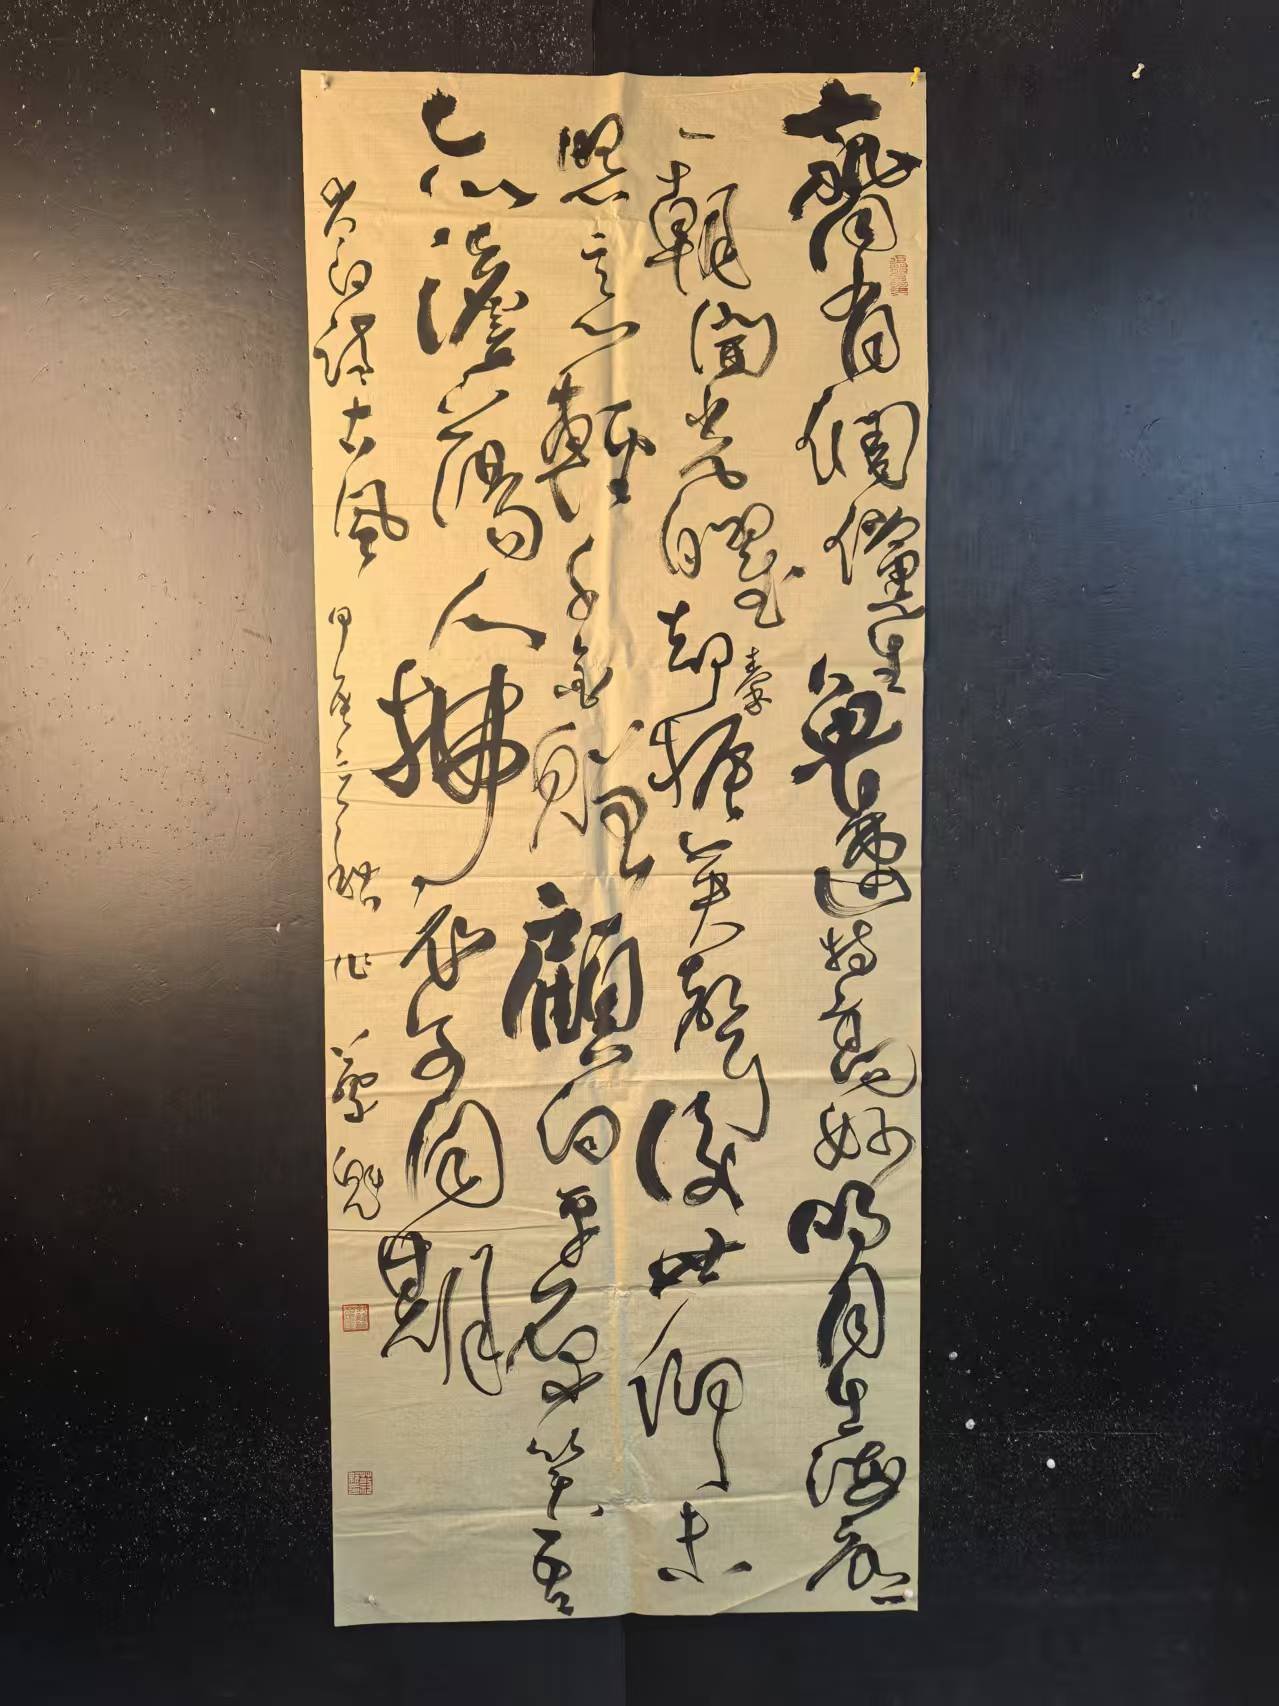 齊有倜儻生魯連特高妙明月出海底
一朝開光曜却秦振英聲後世仰末
照意輕千金贈顧向平原笑吾
亦澹蕩人拂衣可同
李白詩古風 甲辰